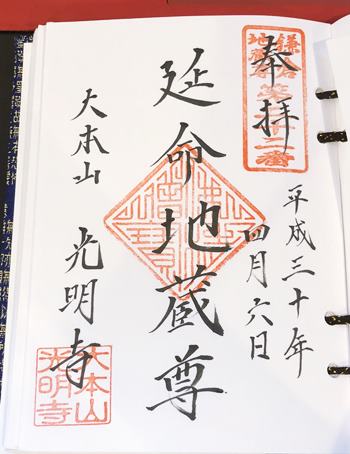 奉拝
平成三十年
四月六日
延命地蔵尊
大本山 光明寺
大本山
光明寺